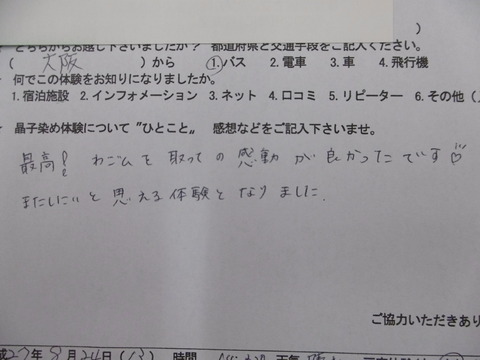 )
どちらからお越し下さいましたか？ 都道府県と交通手段をご記入ください。
( 大阪 )から ①.バス 2.電車 3.車 4.飛行機
何でこの体験をお知りになりましたか。
1.宿泊施設 2.インフォメーション 3.ネット 4.口コミ 5.リピーター 6.その他（
晶子染め体験について〝ひとこと〟 感想などをご記入下さいませ。
最高!! わゴムを取っての感動が良かったです♡
またしたいと思える体験となりました.
ご協力いただきあり
成27年8月24日( ) 時間 天気